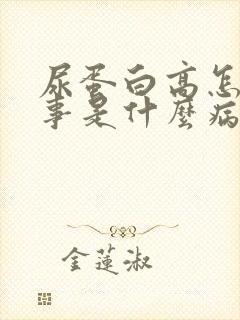 尿蛋白高怎
事是什麼病
金蓮淑